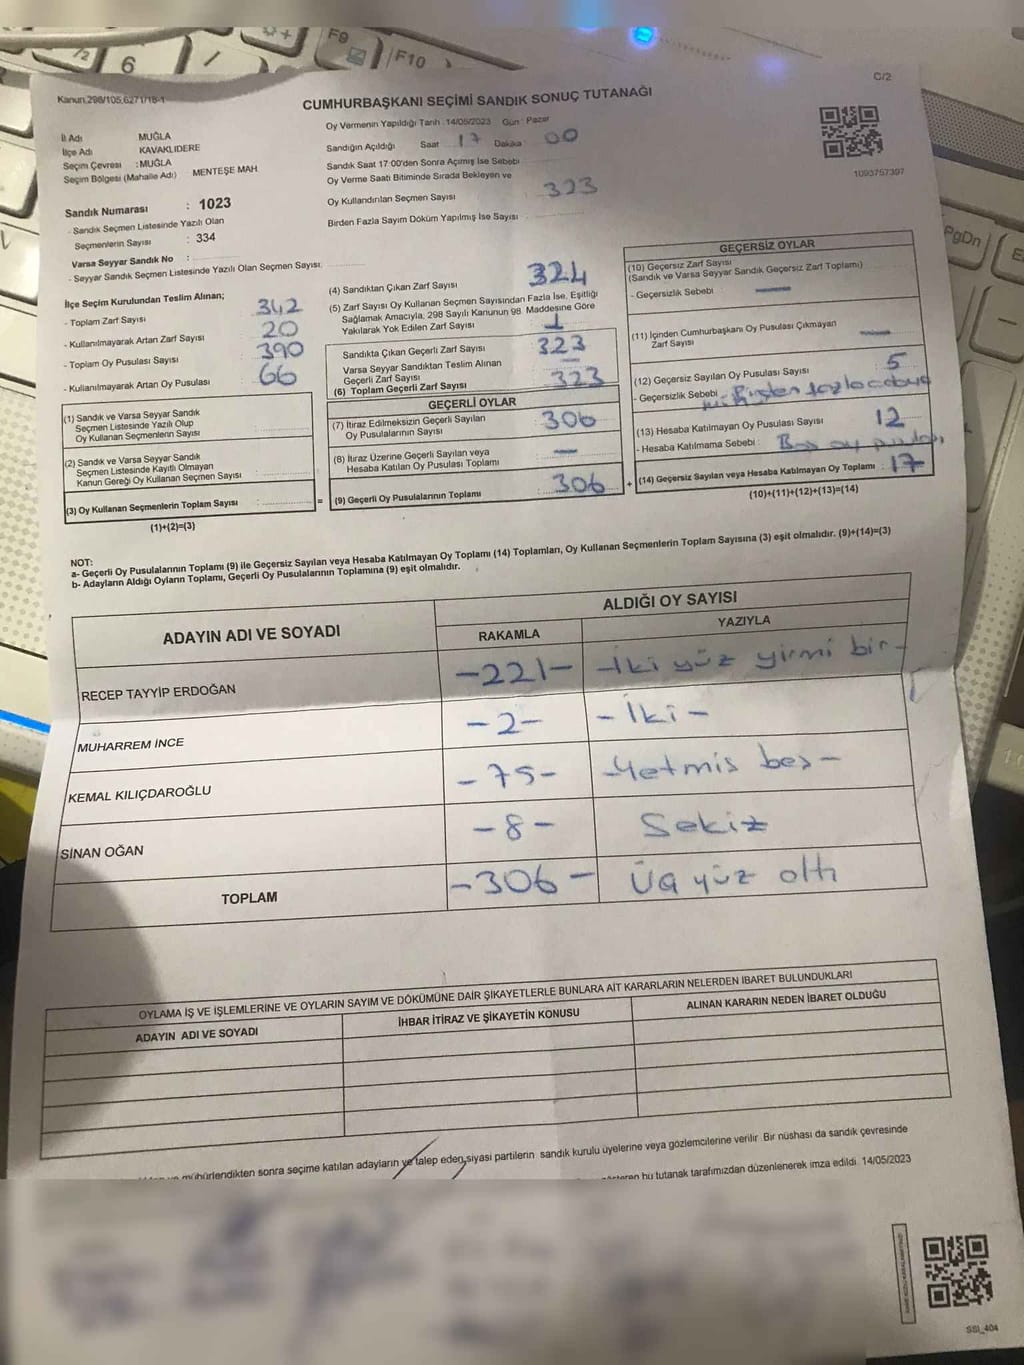 F9
F10
6
/
Kanun,298/105,6271/18-1
C/2
CUMHURBAŞKANI SEÇİMİ SANDIK SONUÇ TUTANAĞI
İl Adı MUĞLA
İlçe Adı KAVAKLIDERE
Seçim Çevresi :MUĞLA
Seçim Bölgesi (Mahalle Adı) MENTEŞE MAH
Oy Vermenin Yapıldığı Tarih 14/05/2023 Gün Pazar
Sandığın Açıldığı Saat 17 Dakika 00
Sandık Saat 17:00'den Sonra Açımış İse Sebebi
Oy Verme Saati Bitiminde Sırada Bekleyen ve
Oy Kullandırılan Seçmen Sayısı 323
Birden Fazla Sayım Döküm Yapılmış İse Sayısı
1093757397
Sandık Numarası : 1023
- Sandık Seçmen Listesinde Yazılı Olan
Seçmenlerin Sayısı : 334
Varsa Seyyar Sandık No :
- Seyyar Sandık Seçmen Listesinde Yazılı Olan Seçmen Sayısı:
İlçe Seçim Kurulundan Teslim Alınan;
- Toplam Zarf Sayısı 342
- Kullanılmayarak Artan Zarf Sayısı 20
- Toplam Oy Pusulası Sayısı 390
- Kullanılmayarak Artan Oy Pusulası 66
(1) Sandık ve Varsa Seyyar Sandık
Seçmen Listesinde Yazılı Olup
Oy Kullanan Seçmenlerin Sayısı
(2) Sandık ve Varsa Seyyar Sandık
Seçmen Listesinde Kayıtlı Olmayan
Kanun Gereği Oy Kullanan Seçmen Sayısı
(3) Oy Kullanan Seçmenlerin Toplam Sayısı :
(1)+(2)=(3)
(4) Sandıktan Çıkan Zarf Sayısı 324
(5) Zarf Sayısı Oy Kullanan Seçmen Sayısından Fazla İse, Eşitliği
Sağlamak Amacıyla, 298 Sayılı Kanunun 98 Maddesine Göre
Yakılarak Yok Edilen Zarf Sayısı 1
Sandıkta Çıkan Geçerli Zarf Sayısı 323
Varsa Seyyar Sandıktan Teslim Alınan
Geçerli Zarf Sayısı —
(6) Toplam Geçerli Zarf Sayısı 323
GEÇERLİ OYLAR
(7) İtiraz Edilmeksizin Geçerli Sayılan
Oy Pusulalarının Sayısı 306
(8) İtiraz Üzerine Geçerli Sayılan veya
Hesaba Katılan Oy Pusulası Toplamı —
= (9) Geçerli Oy Pusulalarının Toplamı 306
GEÇERSİZ OYLAR
(10) Geçersiz Zarf Sayısı
(Sandık ve Varsa Seyyar Sandık Geçersiz Zarf Toplamı)
- Geçersizlik Sebebi —
(11) İçinden Cumhurbaşkanı Oy Pusulası Çıkmayan
Zarf Sayısı —
(12) Geçersiz Sayılan Oy Pusulası Sayısı 5
- Geçersizlik Sebebi Birden fazla
(13) Hesaba Katılmayan Oy Pusulası Sayısı 12
- Hesaba Katılmama Sebebi : Boş oy pusulası
+ (14) Geçersiz Sayılan veya Hesaba Katılmayan Oy Toplamı : 17
(10)+(11)+(12)+(13)=(14)
NOT:
a- Geçerli Oy Pusulalarının Toplamı (9) ile Geçersiz Sayılan veya Hesaba Katılmayan Oy Toplamı (14) Toplamları, Oy Kullanan Seçmenlerin Toplam Sayısına (3) eşit olmalıdır. (9)+(14)=(3)
b- Adayların Aldığı Oyların Toplamı, Geçerli Oy Pusulalarının Toplamına (9) eşit olmalıdır.
ADAYIN ADI VE SOYADI
ALDIĞI OY SAYISI
RAKAMLA YAZIYLA
RECEP TAYYİP ERDOĞAN -221- -İki yüz yirmi bir-
MUHARREM İNCE -2- -İki-
KEMAL KILIÇDAROĞLU -75- -Yetmiş beş-
SİNAN OĞAN -8- Sekiz
TOPLAM -306- Üç yüz altı
OYLAMA İŞ VE İŞLEMLERİNE VE OYLARIN SAYIM VE DÖKÜMÜNE DAİR ŞİKAYETLERLE BUNLARA AİT KARARLARIN NELERDEN İBARET BULUNDUKLARI
ADAYIN ADI VE SOYADI İHBAR İTİRAZ VE ŞİKAYETİN KONUSU ALINAN KARARIN NEDEN İBARET OLDUĞU
mühürlendikten sonra seçime katılan adayların ve talep eden siyasi partilerin sandık kurulu üyelerine veya gözlemcilerine verilir Bir nüshası da sandık çevresinde
bu tutanak tarafımızdan düzenlenerek imza edildi. 14/05/2023
SSI_404
PgDn